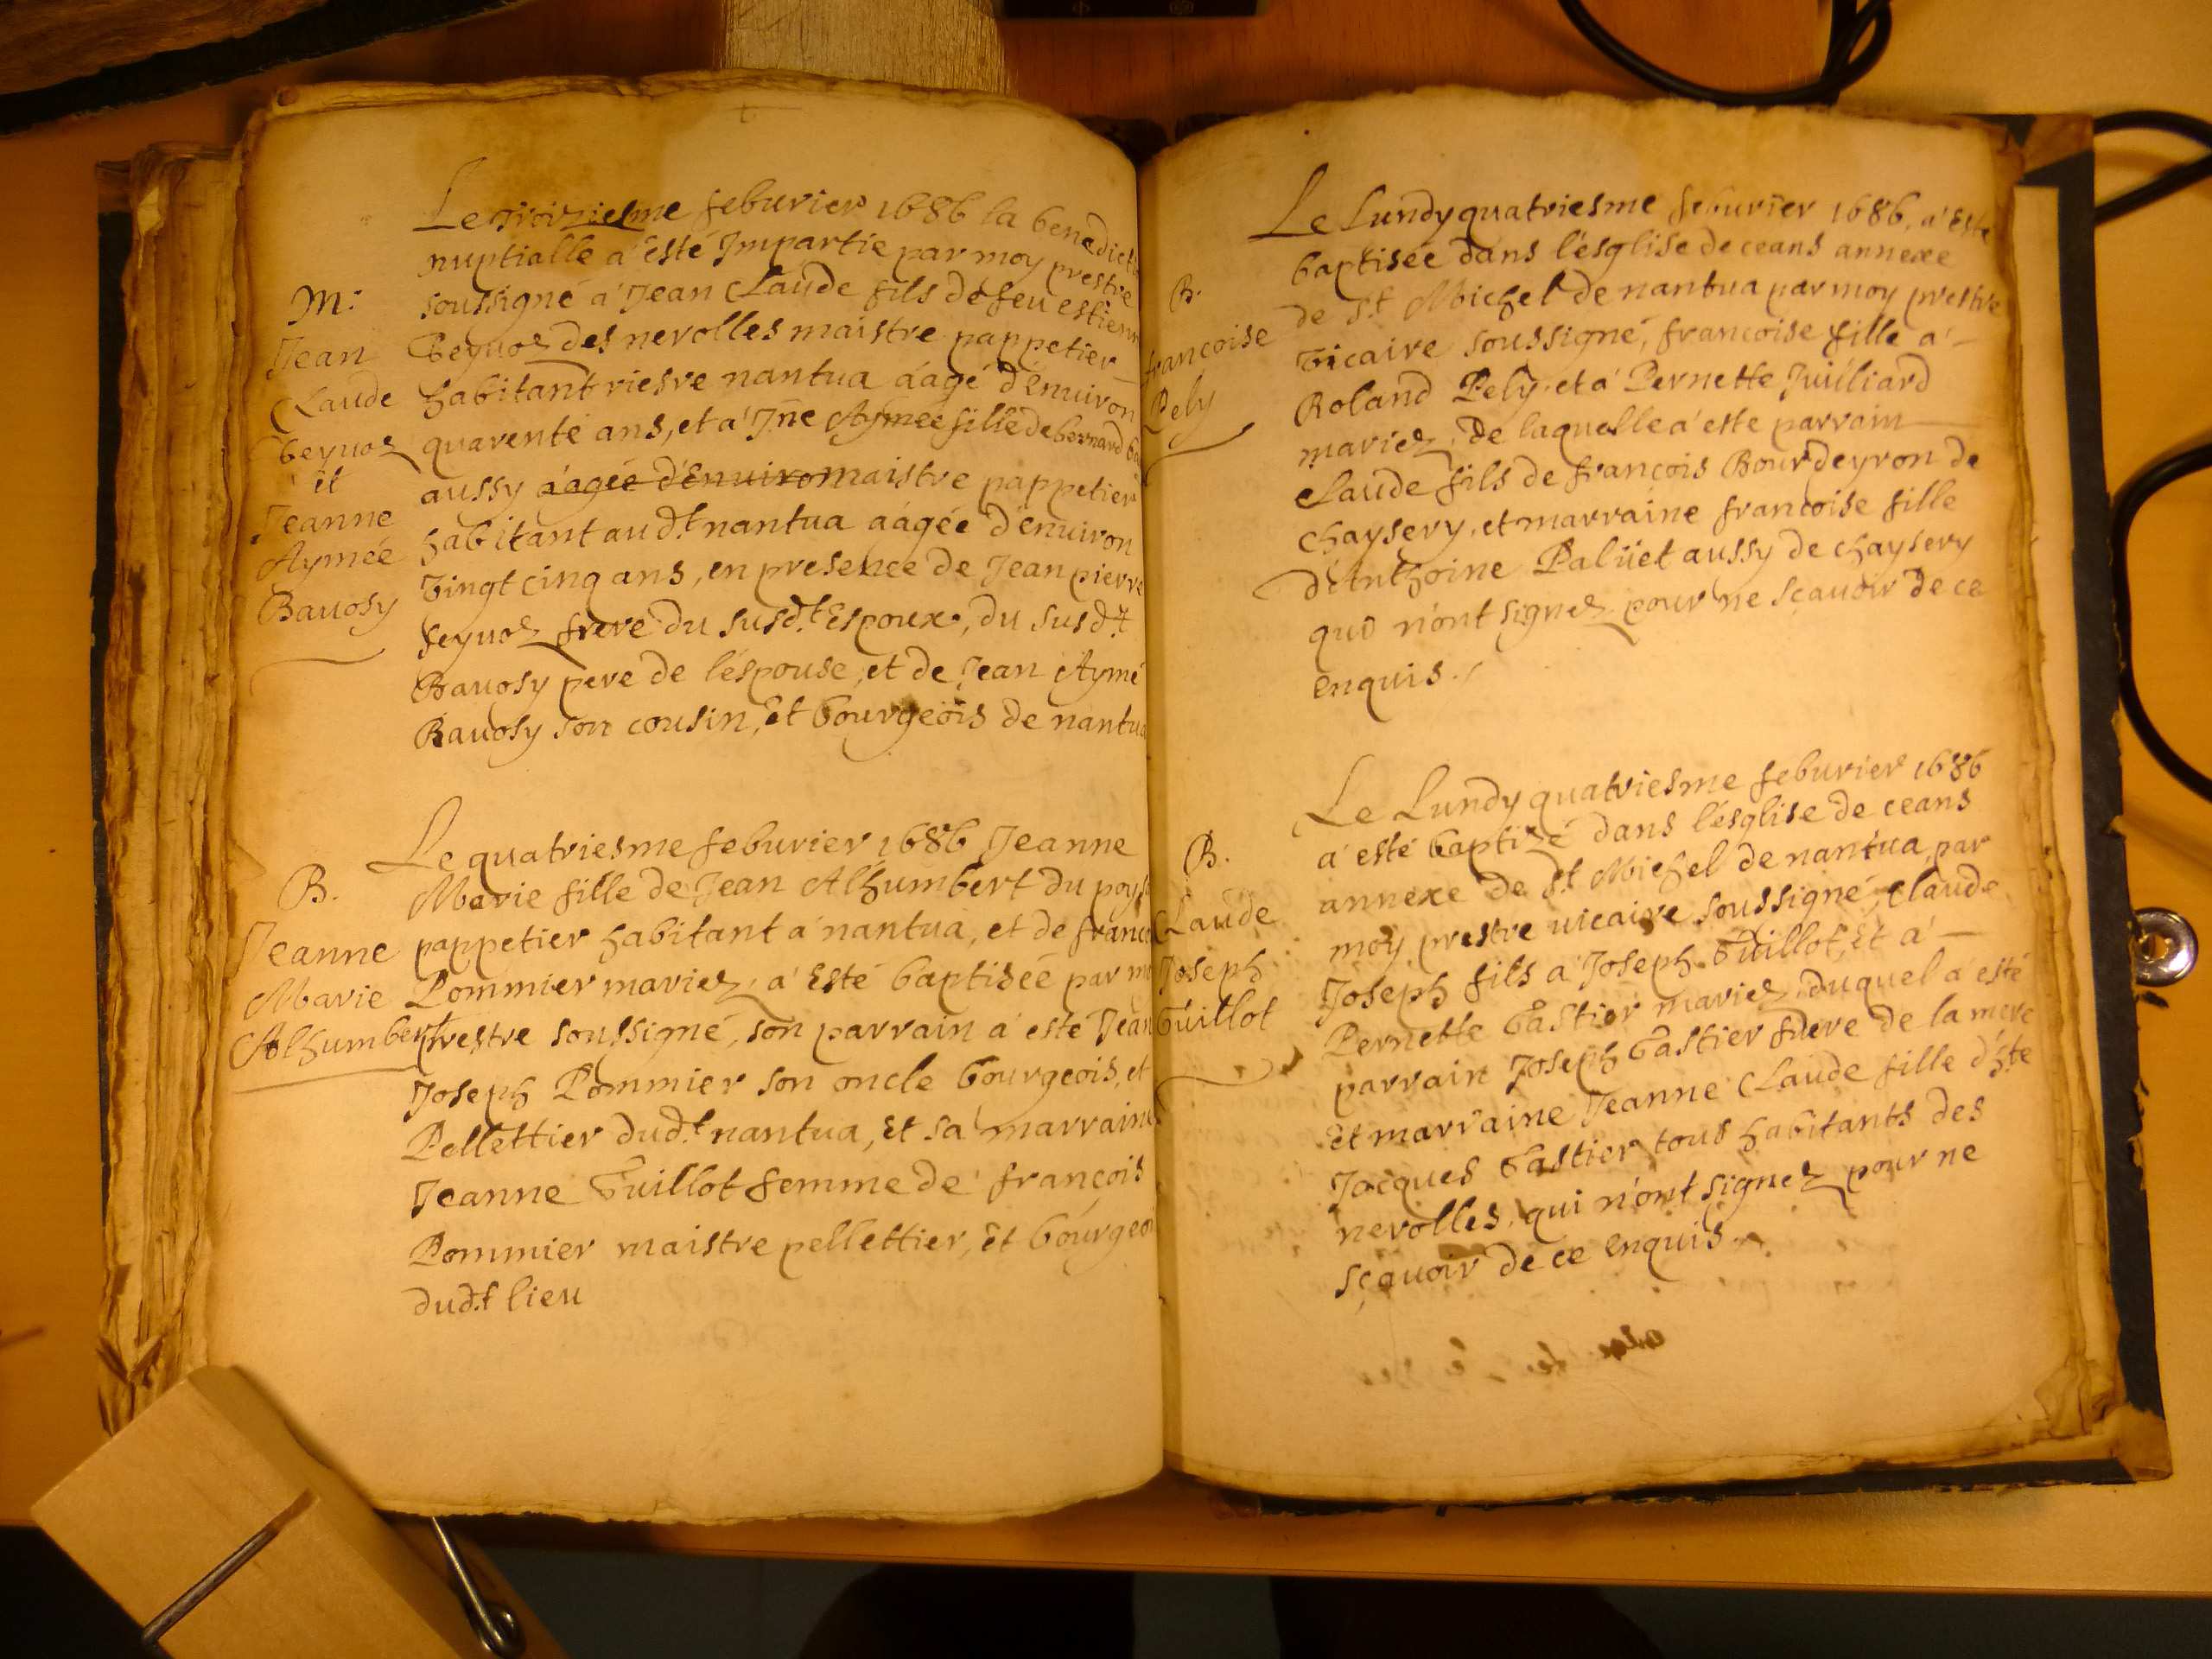 M:
Jean
Claude
Beyuoz
et
Jeanne
Aymée
Bauosy
Le troiziesme feburier 1686 la benedict
nuptialle a' esté Impartie par moy prestre
soussigné a' Jean Claude fils de feu estienn
Beyuoz des nerolles maistre pappetier
habitant riesre nantua áagé d'enuiron
quarente ans, et a' Jne Aymée fille de bernard ba
aussy áagée d'Enuiro maistre pappetier
habitant aud.t nantua aágée d'enuiron
vingt cinq ans, en presence de Jean pierre
beyuoz frere du susd.t Espoux, du susd.t
Bauosy pere de l'espouse, et de Jean Aymé
Bauosy son cousin, Et bourgeois de nantua
B.
Jeanne
Marie
Alhumbert
Le quatriesme feburier 1686 Jeanne
Marie fille de Jean Alhumbert du poys
pappetier habitant a' nantua, et de franc
Pommier mariez, a' Esté baptisée par m
prestre soussigné, son parrain a' esté Jean
Joseph Pommier son oncle bourgeois, et
Pellettier dud.t nantua, Et sa marraine
Jeanne Guillot femme de françois
Pommier maistre pellettier, Et bourgeoi
dud.t lieu
B.
francoise
Pely
Le Lundy quatriesme feburier 1686, a' Esté
baptisée dans l'esglise de ceans annexe
de S.t Michel de nantua par moy prestre
vicaire soussigné, francoise fille a' -
Roland Pely, et a' Pernette Juilliard
mariez, de laquelle a' esté parrain
Claude fils de françois Bourdeyron de
Chaysery, et marraine francoise fille
d'Anthoine Palüet aussy de chaysery
qui n'ont signez pour ne sçauoir de ce
enquis.
B.
Claude
Joseph
Guillot
Le Lundy quatriesme feburier 1686
a' esté baptizé dans l'esglise de ceans
annexe de S.t Michel de nantua, par
moy prestre uicaire soussigné, claude
Joseph fils a' Joseph Guillot, Et a' -
Pernette Gastier mariez, duquel a' esté
parrain Joseph Gastier frere de la mere
Et marraine Jeanne Claude fille d'h.te
Jacques Gastier tous habitants des
nerolles, qui n'ont signez pour ne
sçauoir de ce enquis.